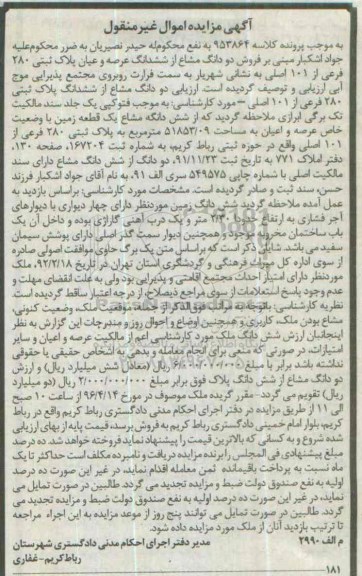 آگهی مزایده اموال غیرمنقول
به موجب پرونده کلاسه ۹۵۳۸۶۴ به نفع محکوم‌له حیدر نصیریان به ضرر محکوم‌علیه
جواد اشکبار مبنی بر فروش دو دانگ مشاع از ششدانگ عرصه و عیان پلاک ثبتی ۲۸۰
فرعی از ۱۰۱ اصلی به نشانی شهریار به سمت فرارت روبروی مجتمع پذیرایی موج
آبی ارزیابی و توصیف گردیده است. ارزیابی دو دانگ مشاع از ششدانگ پلاک ثبتی
۲۸۰ فرعی از ۱۰۱ اصلی – مورد کارشناسی: به موجب فتوکپی یک جلد سند مالکیت
تک برگی ابرازی ملاحظه گردید که از شش دانگه مشاع یک قطعه زمین با وضعیت
خاص عرصه و اعیان به مساحت ۵۱۸۵۳/۰۹ مترمربع به پلاک ثبتی ۲۸۰ فرعی از
۱۰۱ اصلی واقع در حوزه ثبتی رباط کریم، به شماره ثبت ۱۶۷۲۰۴ صفحه ۱۳۰،
دفتر املاک ۷۷۱ به تاریخ ثبت ۹۱/۱۱/۲۳ دو دانگ از شش دانگ مشاع دارای سند
مالکیت اصلی با شماره چاپی ۵۴۹۵۷۵ سری الف ۹۱، به نام آقای جواد اشکبار فرزند
حسن، سند ثبت و صادر گردیده است. مشخصات مورد کارشناسی: براساس بازدید به
عمل آمده ملاحظه گردید شش دانگ زمین موردنظر دارای چهار دیواری با دیوارهای
آجر فشاری به ارتفاع حدود ۲/۳۰ متر و یک درب آهنی گاراژی بوده و داخل آن یک
باب ساختمان مخروبه موجود و همچنین دیوار سمت گذر اصلی دارای پوشش سیمان
سفید می باشد. شایان ذکر است که براساس متن یک برگ حاوی موافقت اصولی صادره
از سوی اداره کل میراث فرهنگی و گردشگری استان تهران در تاریخ ۹۲/۲/۱۸، ملک
موردنظر دارای امتیاز احداث مجتمع اقامتی و پذیرایی بود ولی به علت انقضای مهلت و
عدم وجود پاسخ استعلامات از سوی مراجع ذیصلاح از درجه اعتبار ساقط گردیده است.
نظریه کارشناسی: باتوجه به مراتب فوق‌الذکر از جمله موقعیت ملک، وضعیت کنونی،
مشاع بودن ملک، کاربری و همچنین اوضاع و احوال روز و مندرجات این گزارش به نظر
اینجانبان ارزش شش دانگ ملک مورد کارشناسی اعم از مالکیت عرصه و اعیان و سایر
امتیازات، در صورتی که منعی برای انجام معامله و بدهی به اشخاص حقیقی یا حقوقی
نداشته باشد برابر با مبلغ ریال (معادل شش میلیارد ریال) و ارزش
دو دانگ مشاع از شش دانگ پلاک فوق برابر مبلغ ۲/۰۰۰/۰۰۰/۰۰۰ ریال (دو میلیارد
ریال) تقویم می گردد- مقرر گردیده ملک موصوف در مورخ ۹۶/۴/۱۴ از ساعت ۱۰ صبح
الی ۱۱ از طریق مزایده در دفتر اجرای احکام مدنی دادگستری رباط کریم واقع در رباط
کریم، بلوار امام خمینی دادگستری رباط کریم به فروش برسد، قیمت پایه از بهای ارزیابی
شده شروع و به کسانی که بالاترین قیمت را پیشنهاد نماید فروخته خواهد شد. ده درصد
مبلغ پیشنهادی فی المجلس از برنده مزایده دریافت و نامبرده مکلف است حداکثر تا یک
ماه نسبت به پرداخت باقیمانده ثمن معامله اقدام نماید، در غیر این صورت ده درصد
اولیه به نفع صندوق دولت ضبط و مزایده تجدید می گردد. طالبین در صورت تمایل می
نماید، در غیر این صورت ده درصد اولیه به نفع صندوق دولت ضبط و مزایده تجدید می
گردد. طالبین در صورت تمایل می توانند پنج روز از موعد مزایده به این اجراء مراجعه
تا ترتیب بازدید آنان از ملک مورد مزایده داده شود.
م الف ۲۹۹۰
مدیر دفتر اجرای احکام مدنی دادگستری شهرستان
رباط‌کریم- غفاری
۱۸۱